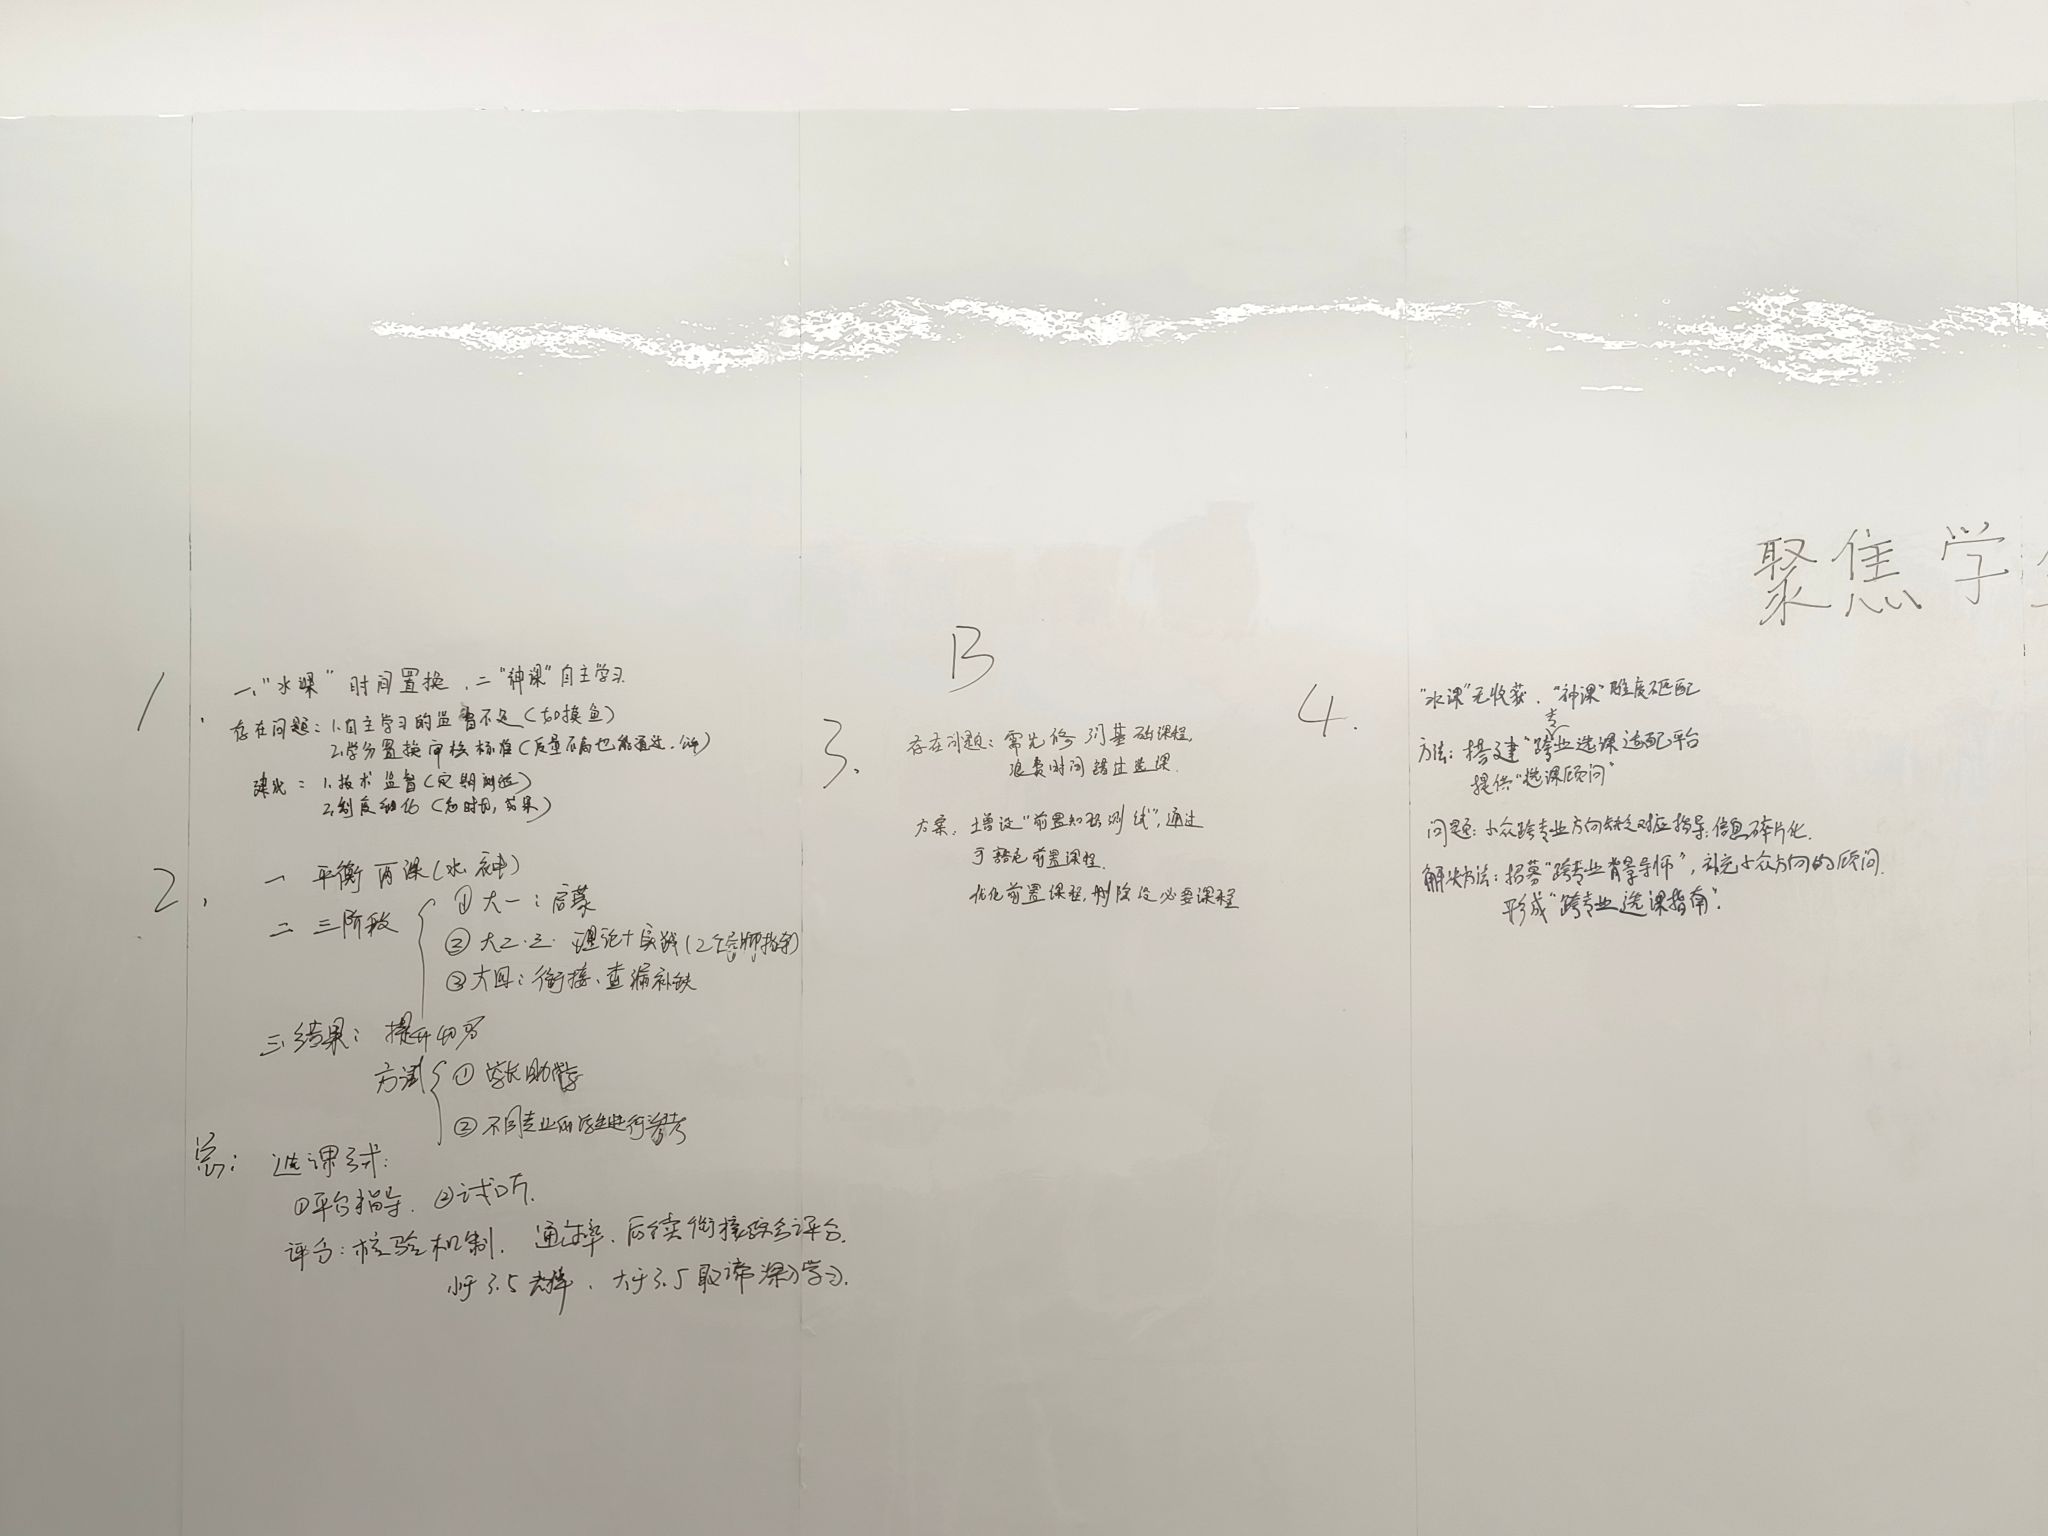 聚焦学
B
1.
一、"水课"时间置换、二"神课"自主学习
存在问题：1.自主学习的监督不足（如摸鱼）
2.学分置换审核标准（质量不高也能通过、公平）
建议：1.技术监督（定期测验）
2.制度细化（如时间，成果）
2.
一 平衡两课（水、神）
二 三阶段
①大一：启蒙
②大二.三. 理论+实践（2个导师指导）
③大四：衔接、查漏补缺
三、结果：提升
方法 ①学长助学
②不同专业的学生进行参考
总：选课方式：
①平台指导、②试听.
评分：核验机制、通过率、后续衔接综合评分.
小于3.5 大于3.5 取谛深入学习.
3.
存在问题：需先修 门基础课程，
浪费时间错过选课.
方案：增设"前置知识测试"，通过
可豁免前置课程.
优化前置课程，删除没必要课程
4.
"水课"无收获、"神课"难度不匹配
方法：搭建"跨专业选课适配平台
提供"选课顾问"
问题：小众跨专业方向缺乏对应指导；信息碎片化.
解决方法：招募"跨专业背景导师"，补充小众方向的顾问.
形成"跨专业选课指南".